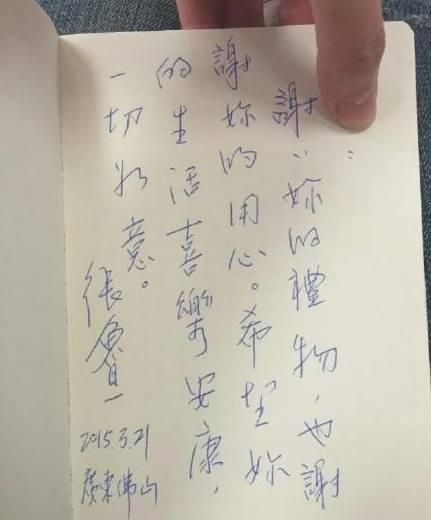 :
謝:妳的禮物,也謝
謝妳的用心。希望妳
的生活喜樂安康,
一切如意。
張魯一
2015.3.21
廣東佛山